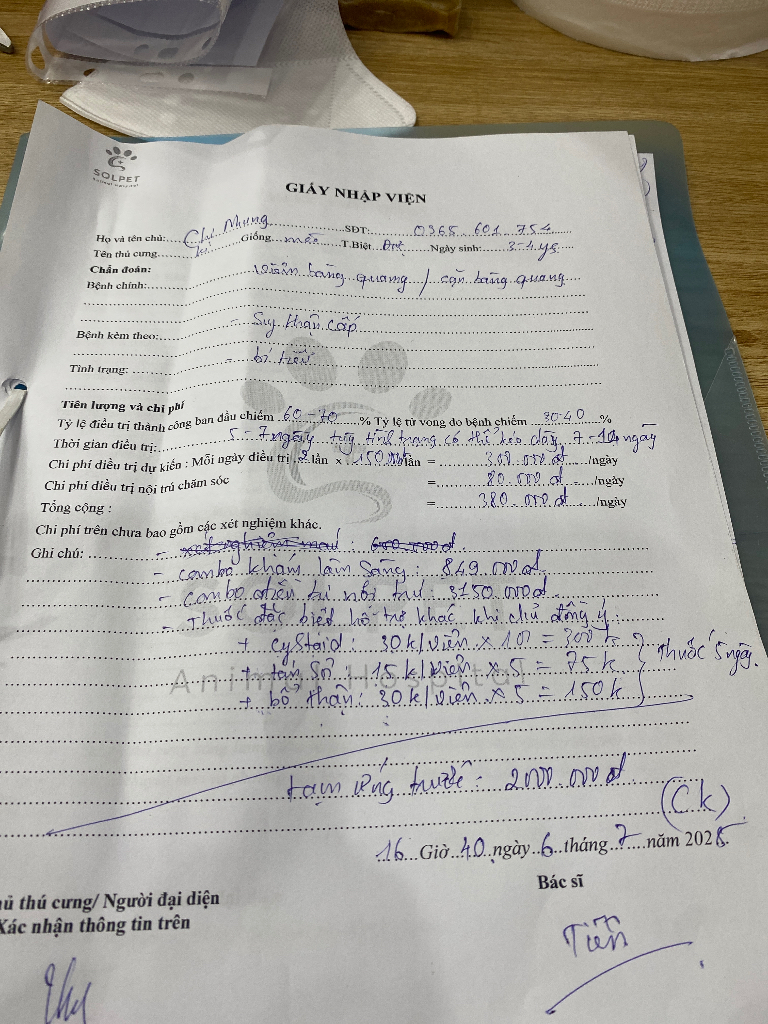 SOLPET
Animal Hospital
GIẤY NHẬP VIỆN
Họ và tên chủ: Chị Nhung SĐT: 0365.601.754
Tên thú cưng: Giống mèo T.Biệt Đực Ngày sinh: 3-4 ys
Chẩn đoán:
Bệnh chính: viêm bàng quang / cặn bàng quang
Bệnh kèm theo: - Suy thận cấp
Tình trạng: - bí tiểu
Tiên lượng và chi phí
Tỷ lệ điều trị thành công ban đầu chiếm 60-70 % Tỷ lệ tử vong do bệnh chiếm 30-40 %
Thời gian điều trị: 5-7 ngày tùy tình trạng có thể kéo dài 7-10 ngày
Chi phí điều trị dự kiến : Mỗi ngày điều trị 2 lần x 150.000/lần = 300.000đ /ngày
Chi phí điều trị nội trú chăm sóc = 80.000đ /ngày
Tổng cộng : = 380.000đ /ngày
Chi phí trên chưa bao gồm các xét nghiệm khác.
Ghi chú: - xét nghiệm máu : 600.000đ
- combo khám lâm sàng : 849.000đ
- combo điều trị nội trú : 3150.000đ
- Thuốc đặc biệt hỗ trợ khác khi chủ đồng ý :
+ cystaid : 30k/viên x 10 = 300k
+ tán sỏi : 15k/viên x 5 = 75k } Thuốc 5 ngày.
+ bổ thận : 30k/viên x 5 = 150k
Animal Hospital
tạm ứng trước : 2000.000đ
(CK)
16 Giờ 40 ngày 6 tháng 7 năm 2025
ủ thú cưng/ Người đại diện
Xác nhận thông tin trên
Bác sĩ
Tiến